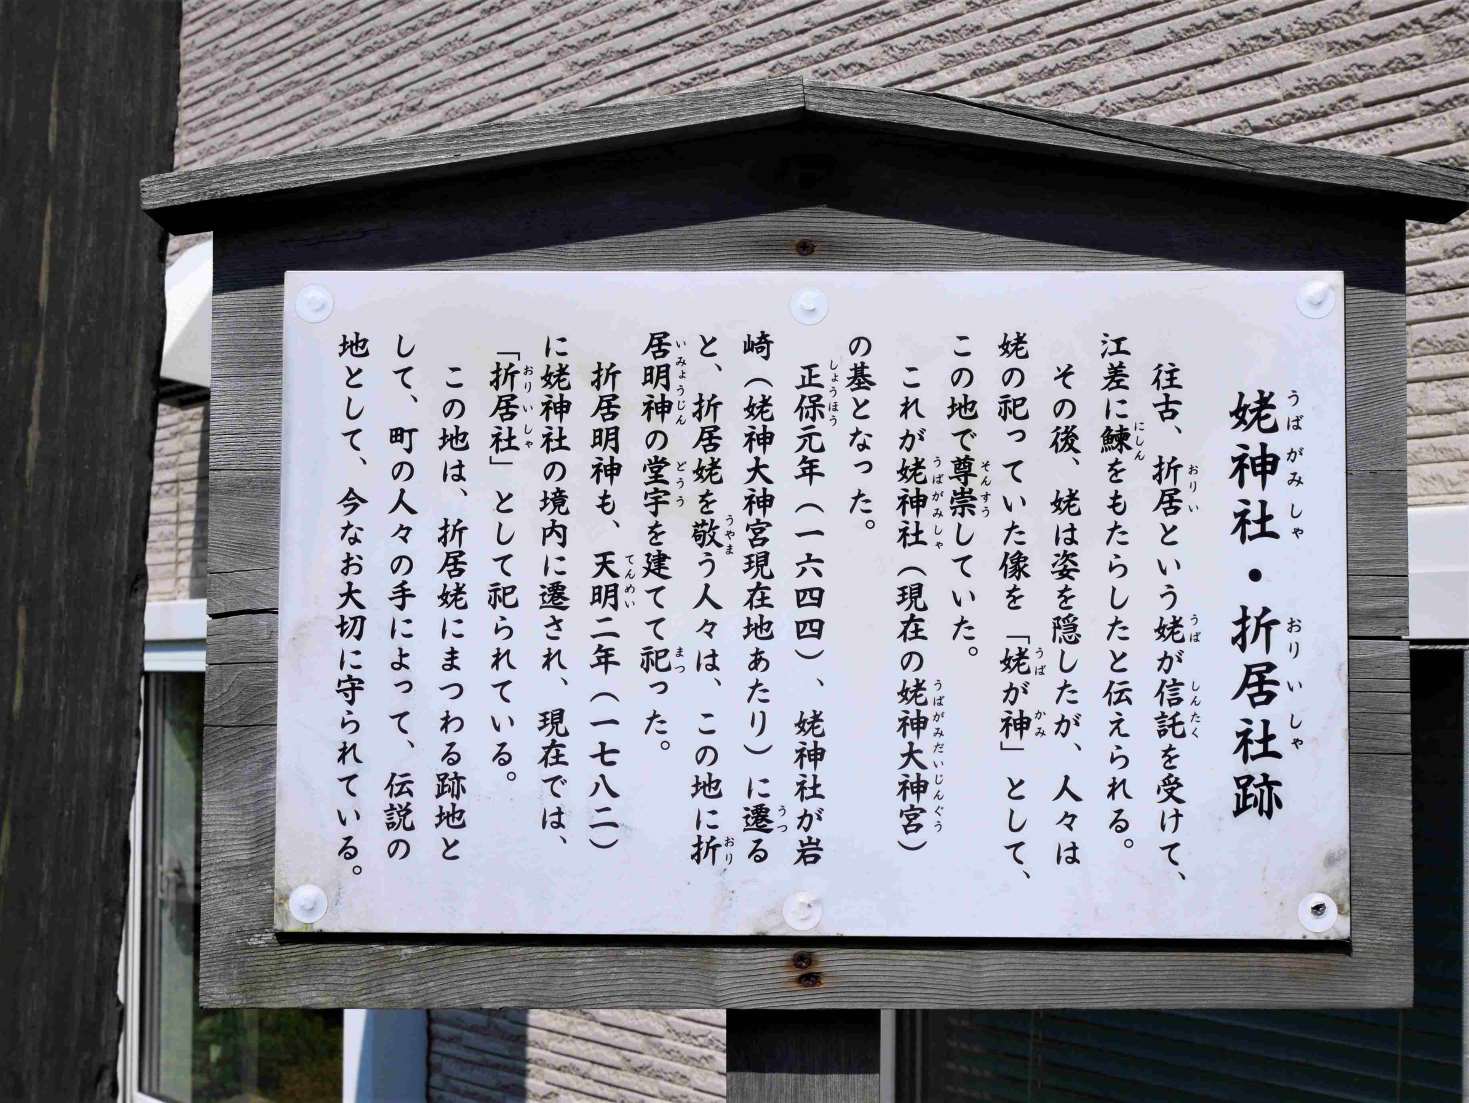 姥神社・折居社跡
往古、折居という姥が信託を受けて、
江差に鰊をもたらしたと伝えられる。
その後、姥は姿を隠したが、人々は
姥の祀っていた像を「姥が神」として、
この地で尊崇していた。
これが姥神社（現在の姥神大神宮）
の基となった。
正保元年（一六四四）、姥神社が岩
崎（姥神大神宮現在地あたり）に遷る
と、折居姥を敬う人々は、この地に折
居明神の堂宇を建てて祀った。
折居明神も、天明二年（一七八二）
に姥神社の境内に遷され、現在では、
「折居社」として祀られている。
この地は、折居姥にまつわる跡地と
して、町の人々の手によって、伝説の
地として、今なお大切に守られている。